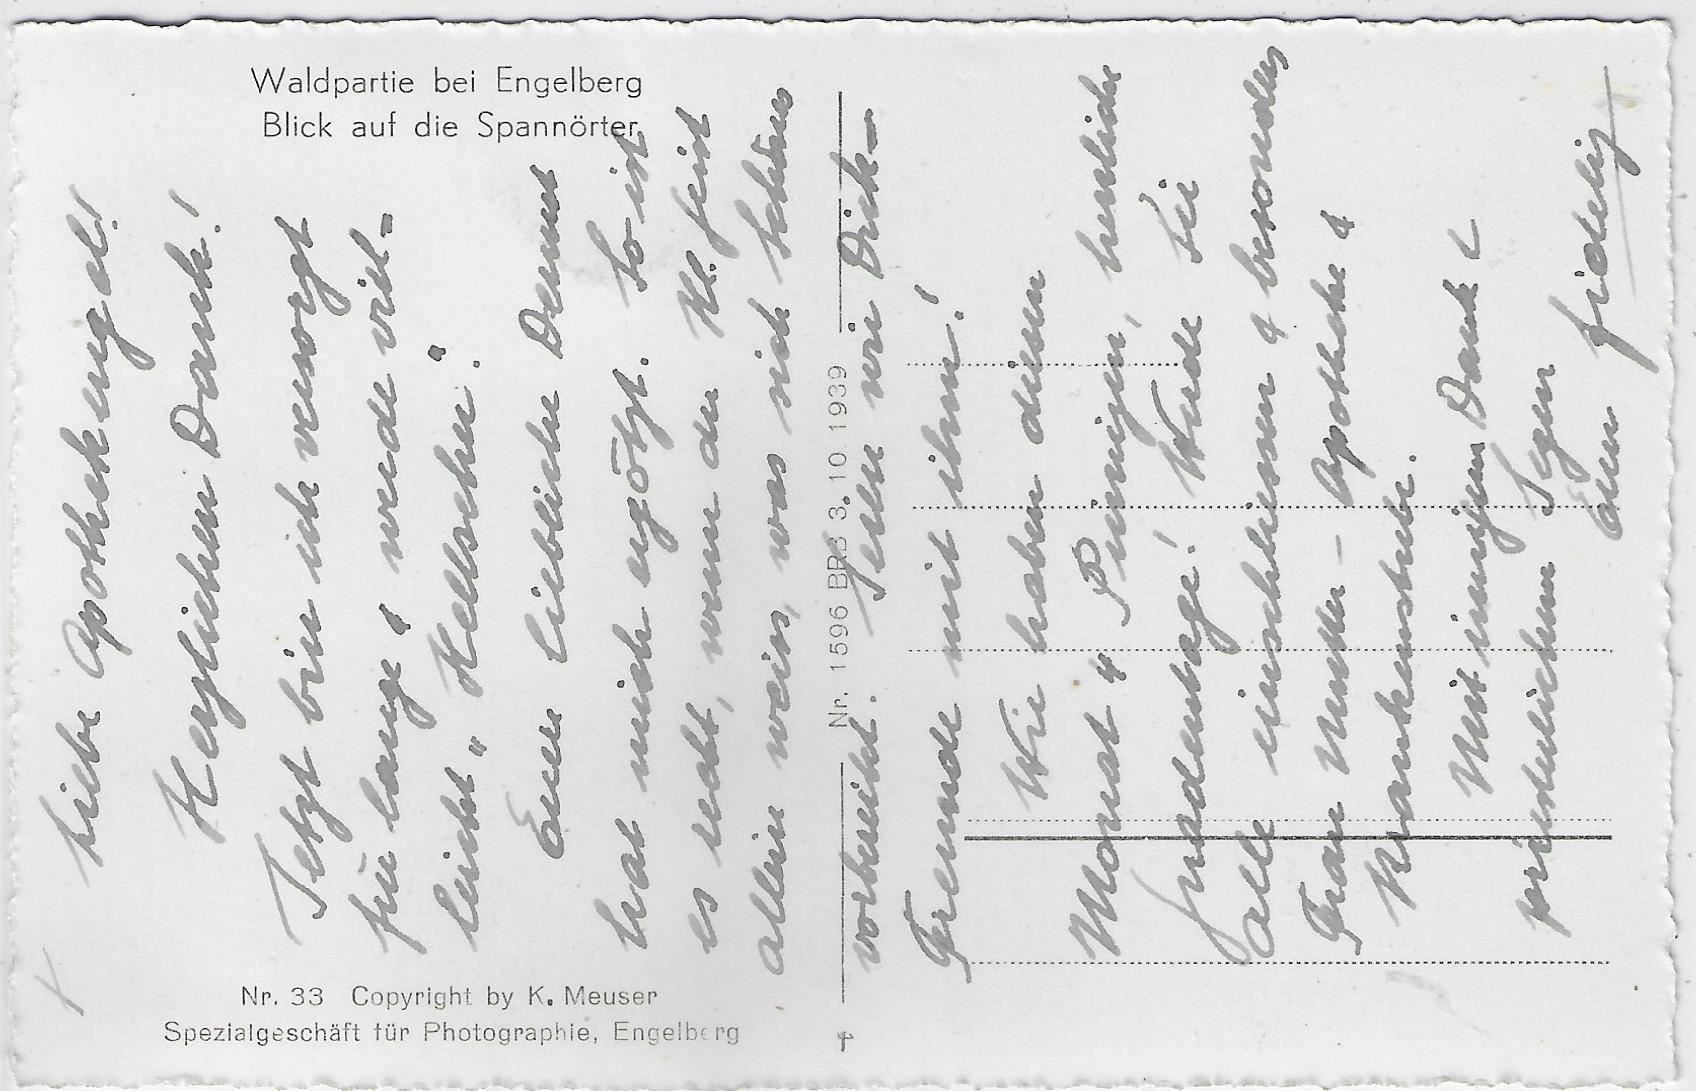 Waldpartie bei Engelberg
Blick auf die Spannörter
Liebe Apothekengel!
Herzlichen Dank!
Jetzt bin ich versorgt
für lange & werde viel-
leicht "Hellseher".
Eure liebliche Demut
hat mich ergötzt. So ist
es recht, wenn der Hl. Geist
allein weiss, was sich Schönes
vorbereitet. Seien wir Dick-
Freunde mit ihm!
Wir haben diesen
Monat 4 Primizen, herrliche
Gnadentage! Werde Sie
alle einschliessen & besonders
Frau Mutter - Apotheke &
Krankenstube.
Mit innigem Dank &
priesterlichem Segen
Euer Fidelis
Nr. 1596 BRB 3. 10. 1939
Nr. 33 Copyright by K. Meuser
Spezialgeschäft für Photographie, Engelberg